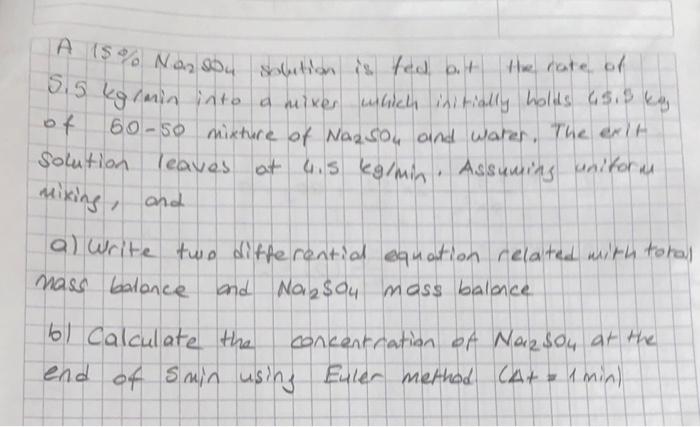 A 15% Na2SO4 solution is fed at the rate of
5.5 kg/min into a mixer which initially holds 45.5 kg
of 50-50 mixture of Na2SO4 and water. The exit
solution leaves at 4.5 kg/min. Assuming uniform
mixing, and
a) Write two differential equation related with total
mass balance and Na2SO4 mass balance
b) Calculate the concentration of Na2SO4 at the
end of 5 min using Euler method (Δt = 1 min)